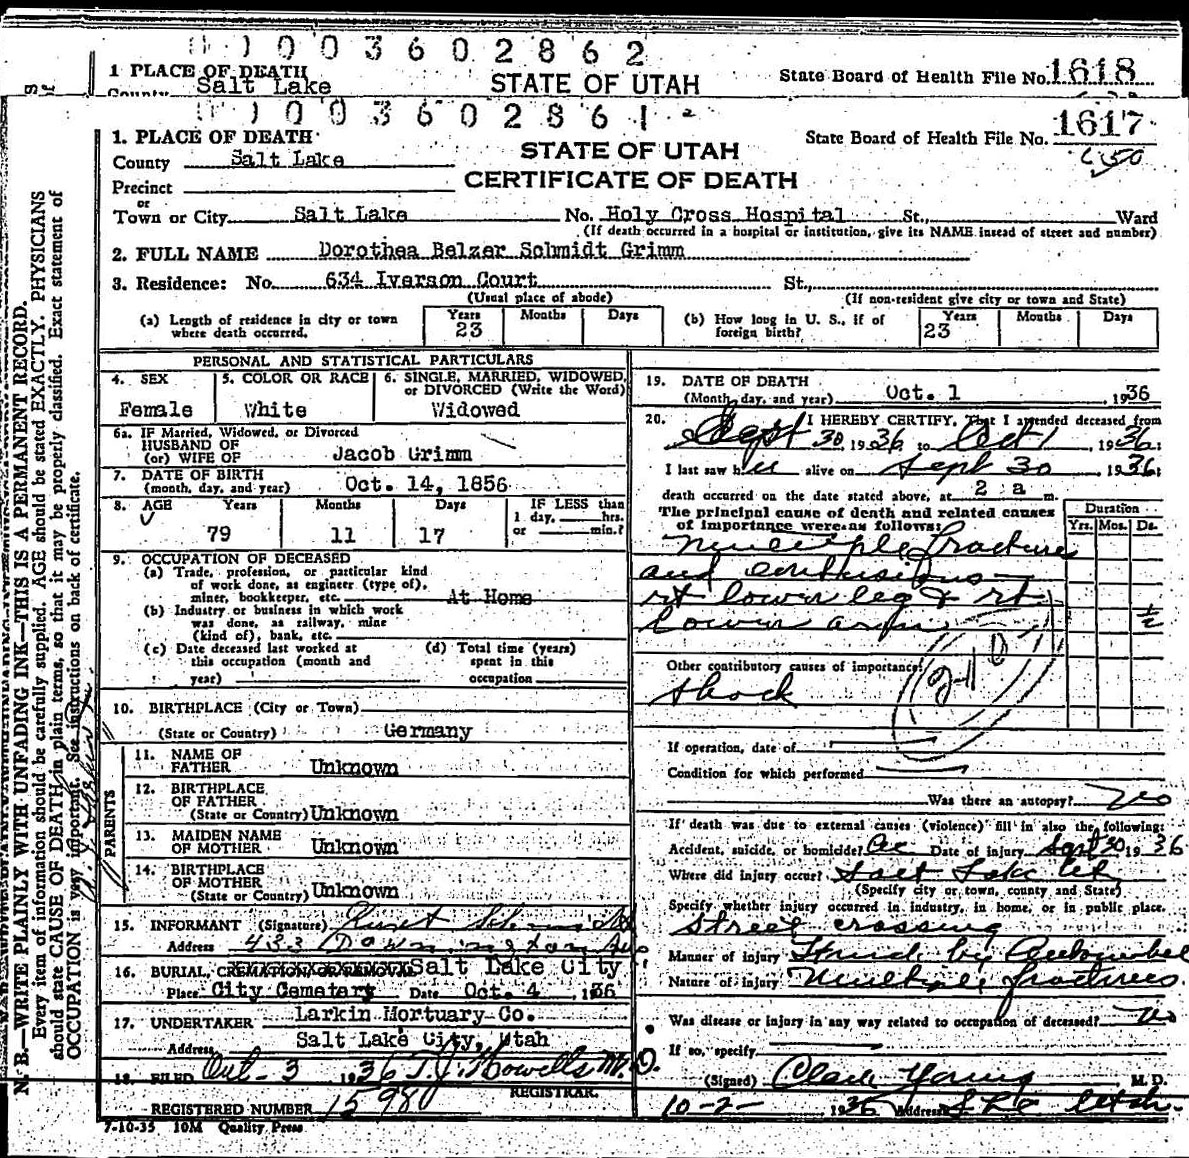 0 0 3 6 0 2 8 6 2
1 PLACE OF DEATH
County Salt Lake STATE OF UTAH State Board of Health File No. 1618
0 0 3 6 0 2 8 6 1
1. PLACE OF DEATH State Board of Health File No. 1617
County Salt Lake STATE OF UTAH
Precinct CERTIFICATE OF DEATH
or
Town or City Salt Lake No. Holy Cross Hospital St., Ward
(If death occurred in a hospital or institution, give its NAME insead of street and number)
2. FULL NAME Dorothea Belzer Schmidt Grimm
3. Residence: No. 634 Iverson Court St.,
(Usual place of abode) (If non-resident give city or town and State)
(a) Length of residence in city or town where death occurred. Years 23 Months Days (b) How long in U. S., if of foreign birth? Years 23 Months Days
PERSONAL AND STATISTICAL PARTICULARS
4. SEX 5. COLOR OR RACE 6. SINGLE, MARRIED, WIDOWED,
or DIVORCED (Write the Word)
Female White Widowed
6a. IF Married, Widowed, or Divorced
HUSBAND OF
(or) WIFE OF Jacob Grimm
7. DATE OF BIRTH
(month, day, and year) Oct. 14, 1856
8. AGE Years Months Days IF LESS than
1 day, hrs.
79 11 17 or min.?
9. OCCUPATION OF DECEASED
(a) Trade, profession, or particular kind
of work done, as engineer (type of),
miner, bookkeeper, etc. At Home
(b) Industry or business in which work
was done, as railway, mine
(kind of), bank, etc.
(c) Date deceased last worked at
this occupation (month and
year)
(d) Total time (years)
spent in this
occupation
10. BIRTHPLACE (City or Town)
(State or Country) Germany
PARENTS
11. NAME OF
FATHER Unknown
12. BIRTHPLACE
OF FATHER
(State or Country) Unknown
13. MAIDEN NAME
OF MOTHER Unknown
14. BIRTHPLACE
OF MOTHER
(State or Country) Unknown
15. INFORMANT (Signature) Kurt Schmidt
Address 433 Downington Ave
16. BURIAL, CREMATION OR REMOVAL Salt Lake City
Place City Cemetery Date Oct. 4, 1936
17. UNDERTAKER Larkin Mortuary Co.
Address Salt Lake City, Utah
18. FILED Oct - 3 1936 T. J. Howells M. D.
REGISTRAR.
REGISTERED NUMBER 15980
7-10-35 10M Quality Press
19. DATE OF DEATH
(Month, day, and year) Oct. 1, 1936
20. I HEREBY CERTIFY, That I attended deceased from
Sept 30 1936 to Oct 1, 1936;
I last saw her alive on Sept 30 1936;
death occurred on the date stated above, at 2 a m.
The principal cause of death and related causes
of importance were as follows:
Duration
Yrs. Mos. Ds.
Multiple fractures
and contusions
rt lower leg & rt
lower arm 1/2
Other contributory causes of importance:
Shock
210
If operation, date of
Condition for which performed
Was there an autopsy? No
If death was due to external causes (violence) fill in also the following:
Accident, suicide, or homicide? Ac Date of injury Sept 30 1936
Where did injury occur? Salt Lake City
(Specify city or town, county and State)
Specify whether injury occurred in industry, in home, or in public place.
Street crossing
Manner of injury Struck by Automobel
Nature of injury Multiple fractures
Was disease or injury in any way related to occupation of deceased? No
If so, specify
(Signed) Clark Young M. D.
10-2- 1936 Address S L C Utah.
N. B.—WRITE PLAINLY WITH UNFADING INK—THIS IS A PERMANENT RECORD.
Every item of information should be carefully supplied. AGE should be stated EXACTLY. PHYSICIANS
should state CAUSE OF DEATH in plain terms, so that it may be properly classified. Exact statement of
OCCUPATION is very important. See instructions on back of certificate.